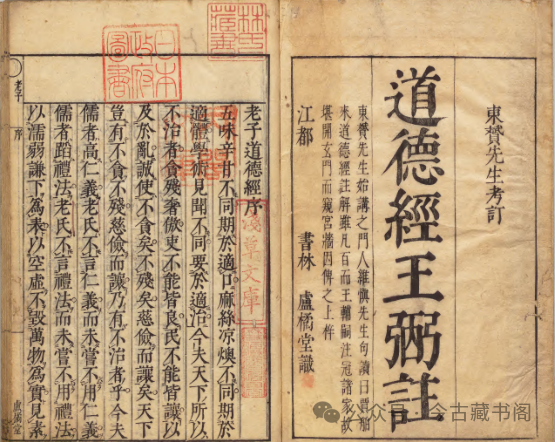 東贇先生考訂
道德經王弼註
東贇先生始講之門人維慎先生句讀曰晋
來道德經註解雖凡百而王輔嗣注冠諸家故
堪開玄門而窺宮牆因俾之上梓
江都 書林 盧橘堂識
林氏藏書
日本政府圖書
淺草文庫
老子道德經序
五味辛甘不同期於適口麻絲凉燠不同期於
適體學術見聞不同要於適治今夫天下所以
不治者貪殘奢傲吏不能皆良民不能皆讓以
及於亂誠使不貪矣不殘矣慈儉而讓矣天下
豈有不貪不殘慈儉而讓乃有不治者乎今夫
儒者高仁義老氏不言仁義而未嘗不用仁義
儒者蹈禮法老氏不言禮法而未嘗不用禮法
以濡弱謙下為表以空虛不毀萬物為實見素
老子 序
盧橘堂
公众号 今古藏书阁